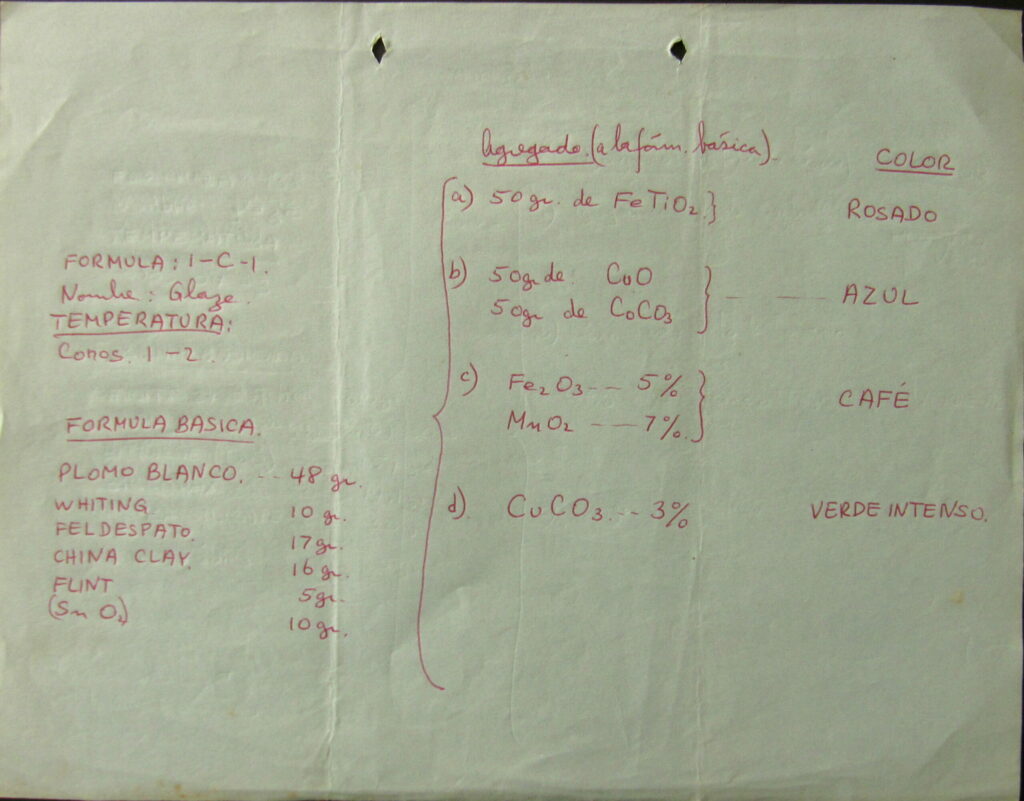 FORMULA: 1-C-1.
Nombre: Glaze.
TEMPERATURA:
Conos. 1-2.
FORMULA BASICA.
PLOMO BLANCO. -- 48 gr.
WHITING 10 gr.
FELDESPATO. 17 gr.
CHINA CLAY. 16 gr.
FLINT 5 gr.
(Sn O2) 10 gr.
Agregado. (a la fórm. básica). COLOR
a) 50 gr. de FeTiO2.} ROSADO
b) 50 gr de CuO
50 gr de CoCO3 } - --- AZUL
c) Fe2O3 --- 5%
MnO2 --- 7%. } CAFÉ
d). CuCO3. -- 3% VERDE INTENSO.